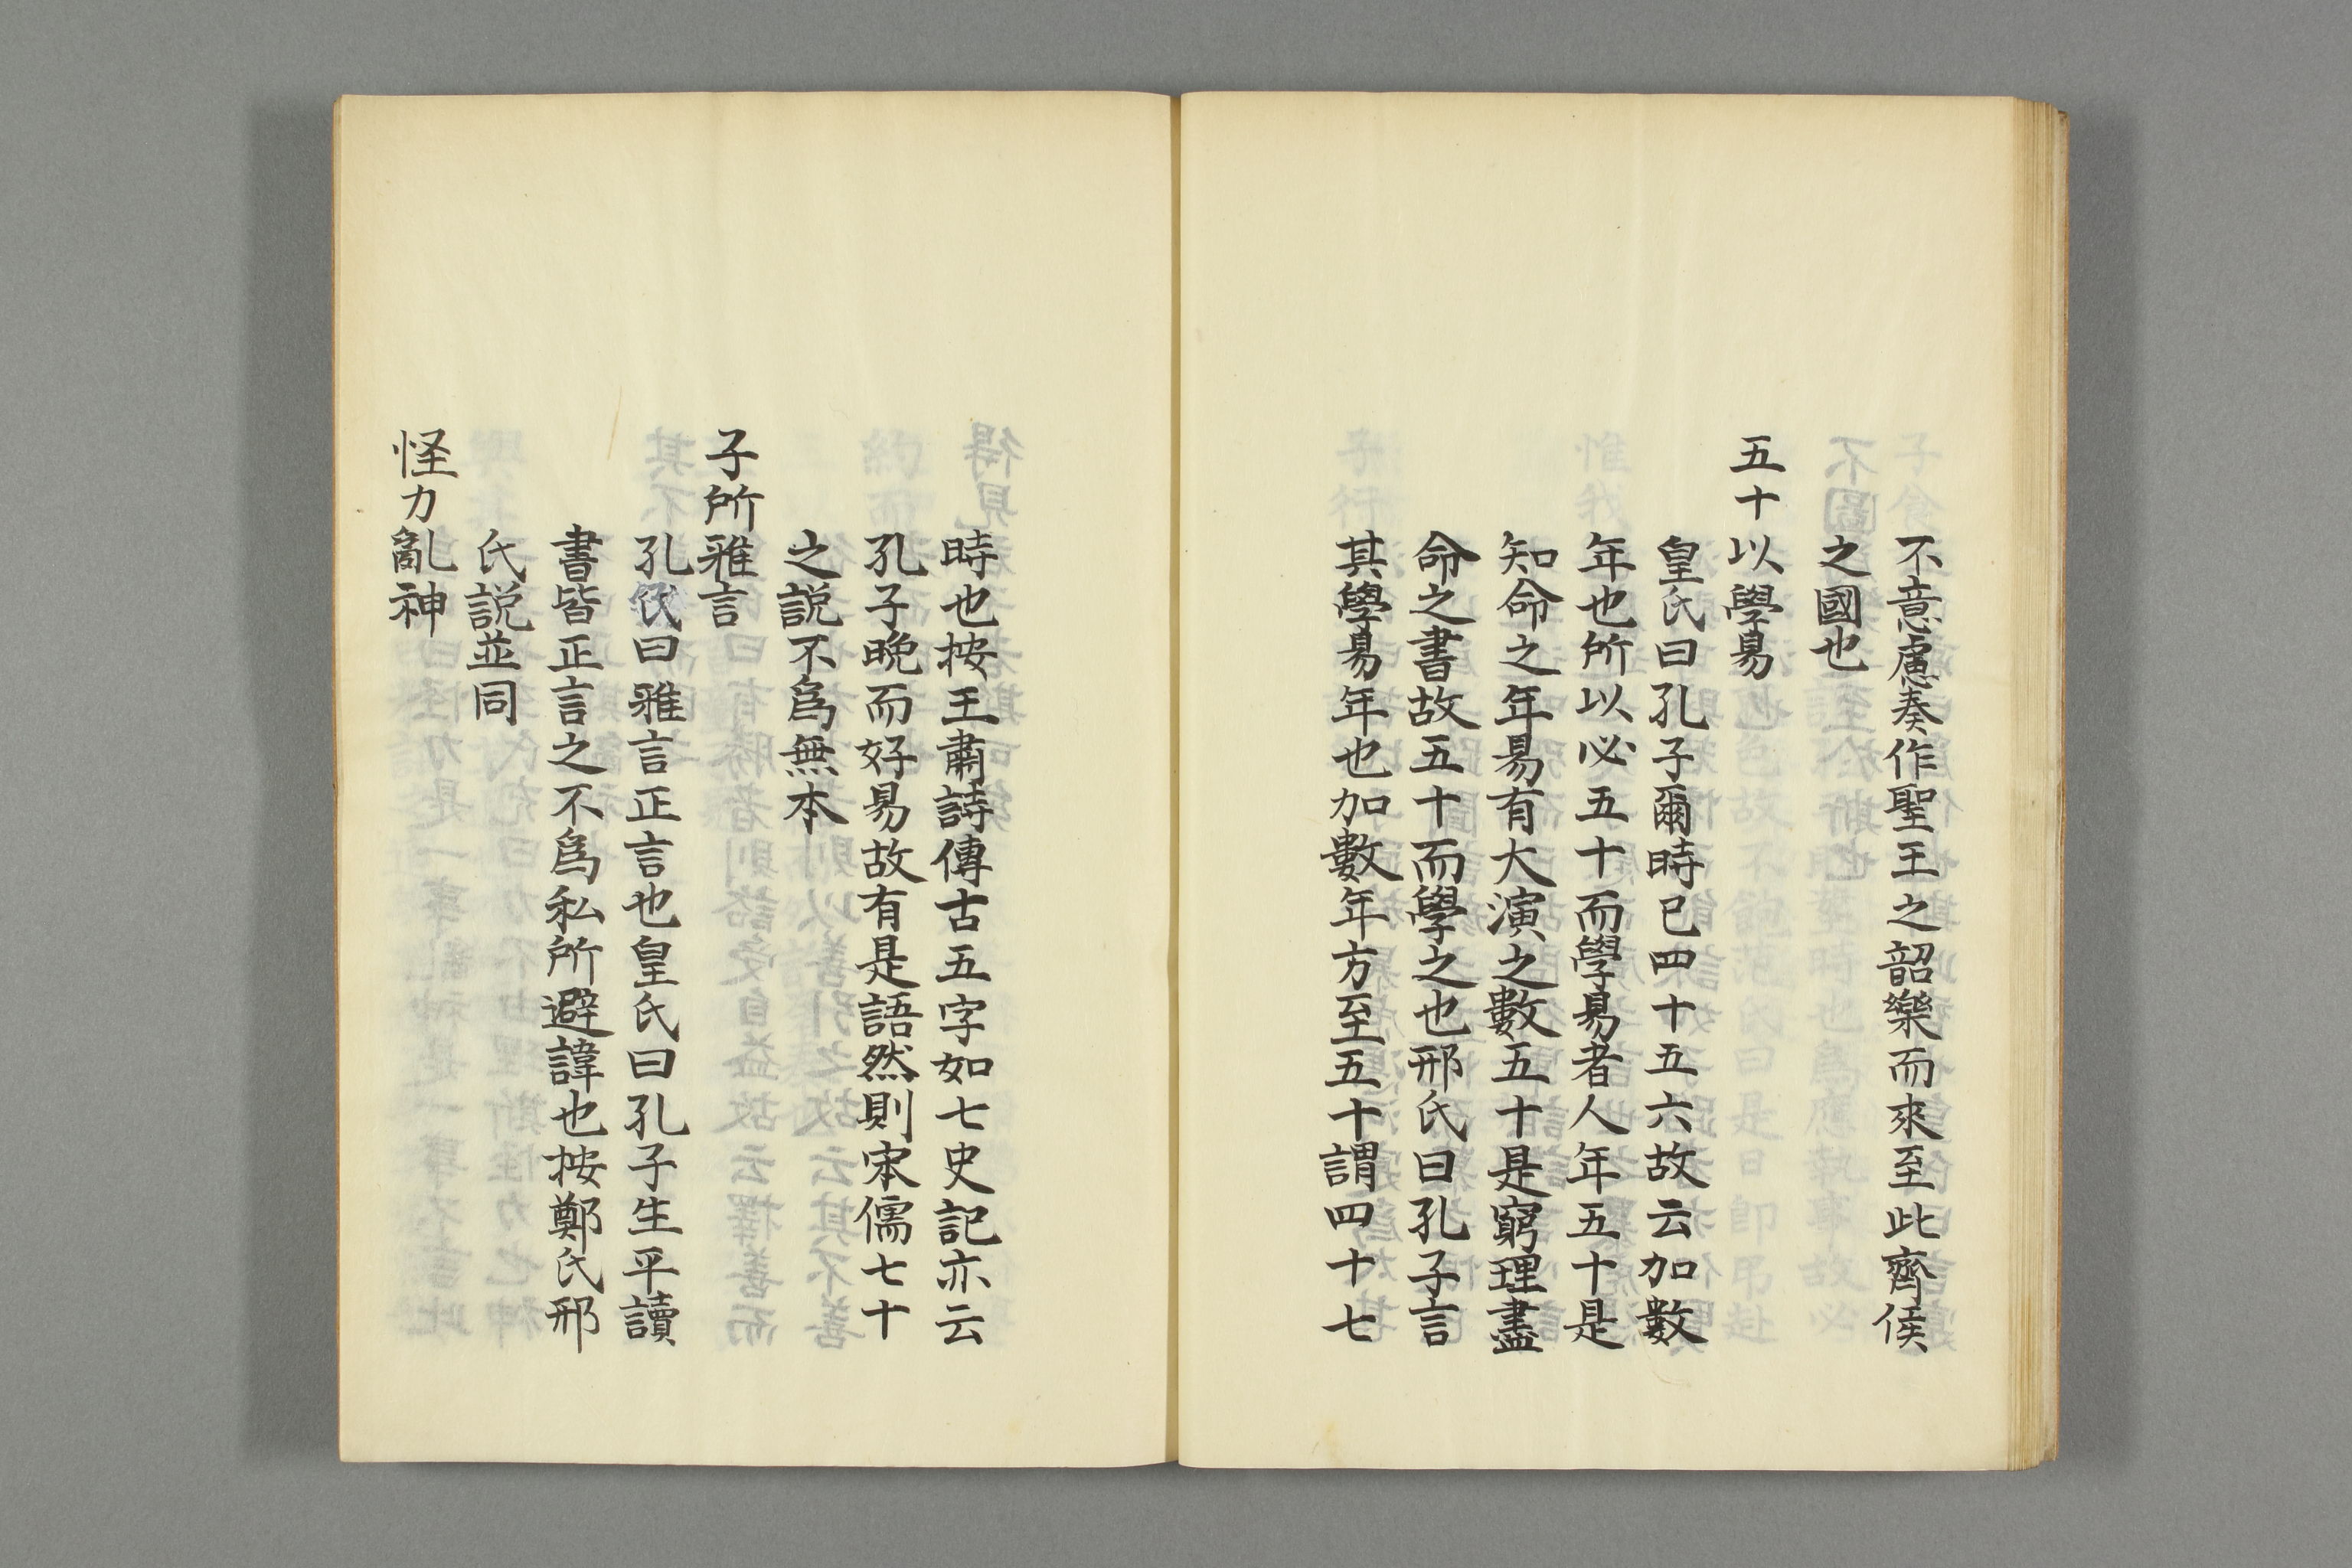 不意慮奏作聖王之韶樂而來至此齊侯
之國也
五十以學易
皇氏曰孔子爾時已四十五六故云加數
年也所以必五十而學易者人年五十是
知命之年易有大演之數五十是窮理盡
命之書故五十而學之也邢氏曰孔子言
其學易年也加數年方至五十謂四十七
時也按王肅詩傳古五字如七史記亦云
孔子晚而好易故有是語然則宋儒七十
之說不為無本
子所雅言
孔氏曰雅言正言也皇氏曰孔子生平讀
書皆正言之不為私所避諱也按鄭氏邢
氏說並同
怪力亂神